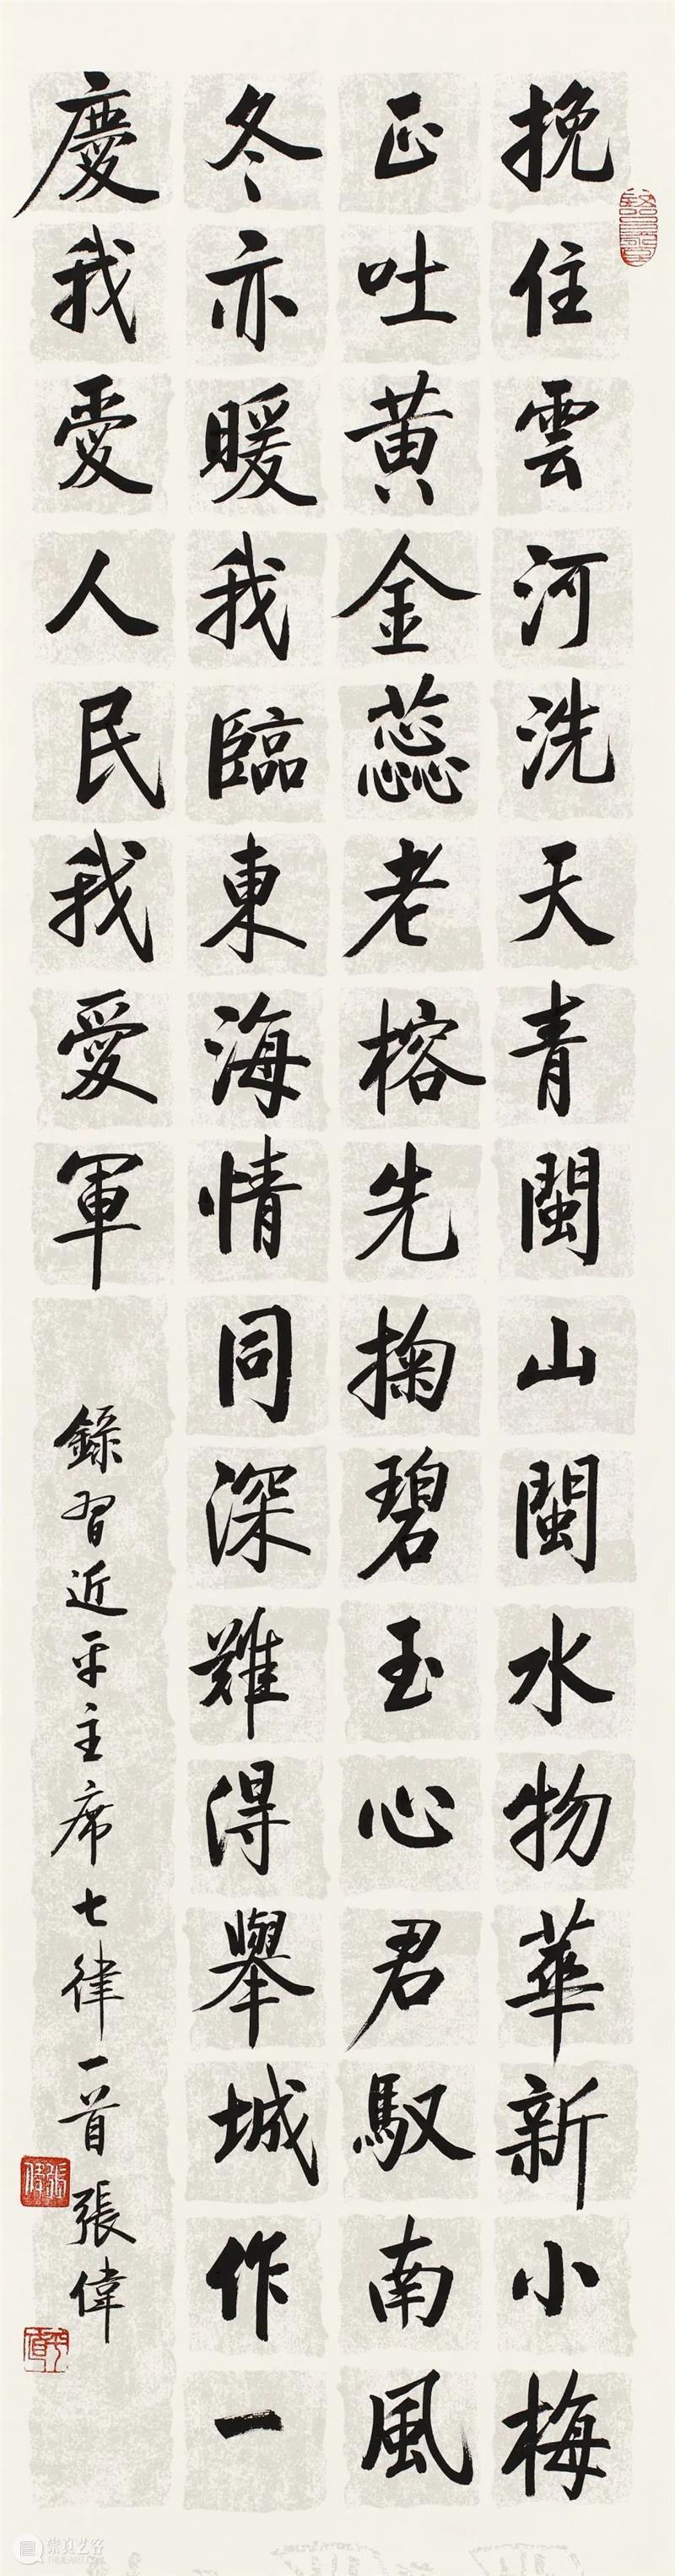 挽住雲河洗天青閩山閩水物華新小梅
正吐黄金蕊老榕先掬碧玉心君馭南風
冬亦暖我臨東海情同深難得舉城作一
慶我愛人民我愛軍
錄習近平主席七律一首張偉
張偉
崇真艺客